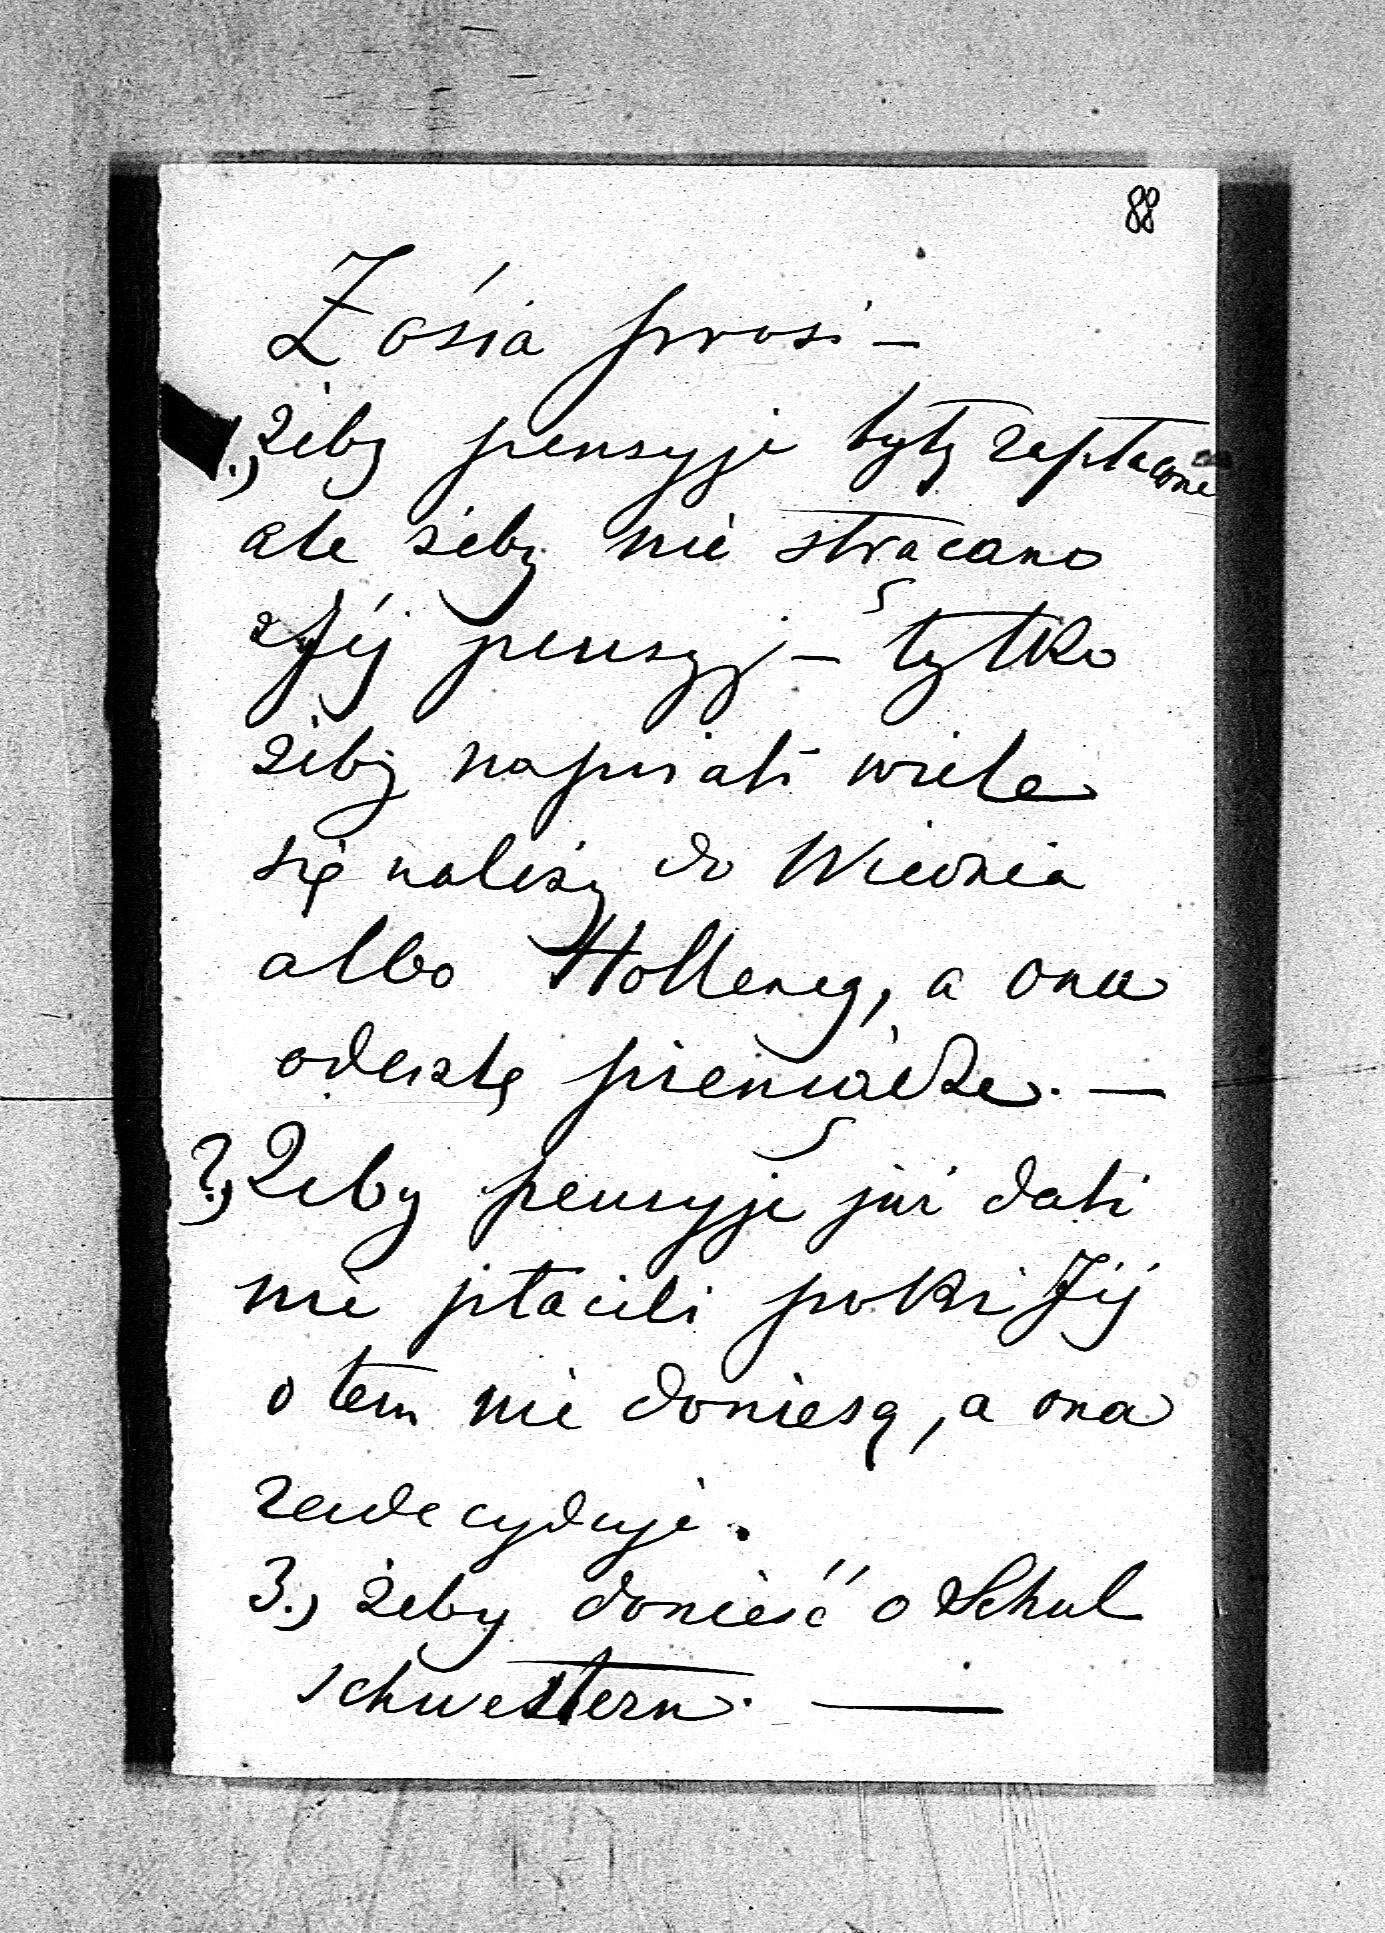 88
Zosia prosi –
1.) żeby pensyje były zapłacone
ale żeby nie strącano
z Jéj pensyj – tylko
żeby napisali wiele
się należy do Wiednia
albo Holleneg, a ona
odeszle pieniądze. —
2.) Żeby pensyje już dali
nie płacili poki Jéj
o tem nie doniesą, a ona
zadecyduje.
3.) żeby donieść o Schul
schwestern. —